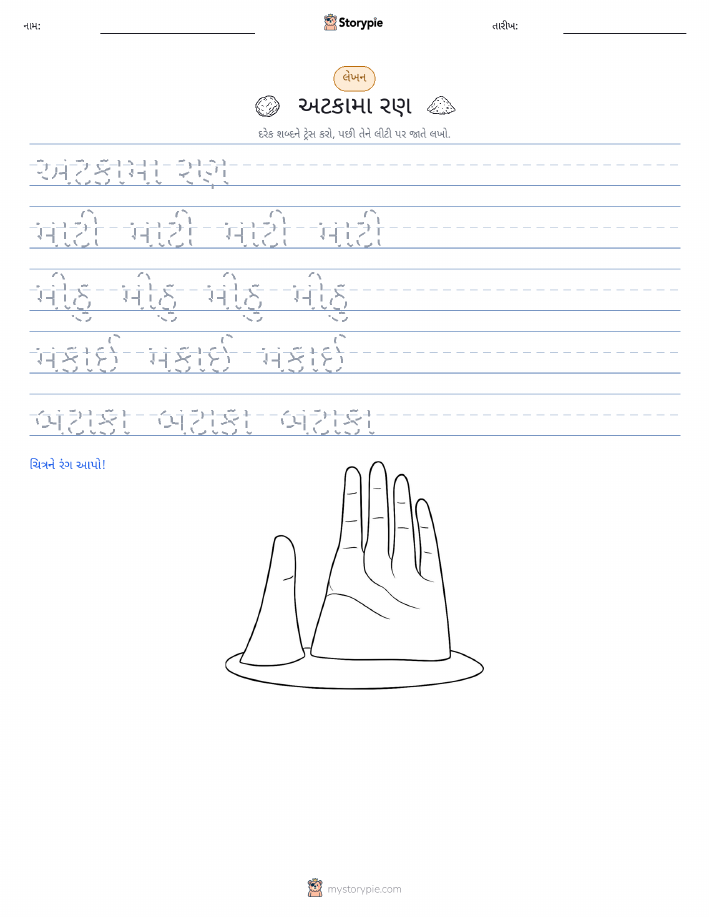 નામ:
Storypie
તારીખ:
લેખન
અટકામા રણ
દરેક શબ્દને ટ્રેસ કરો, પછી તેને લીટી પર જાતે લખો.
અટકામા રણ
માટી માટી માટી માટી
મીઠુ મીઠુ મીઠુ મીઠુ
મકાઈ મકાઈ મકાઈ
બટાકા બટાકા બટાકા
ચિત્રને રંગ આપો!
mystorypie.com